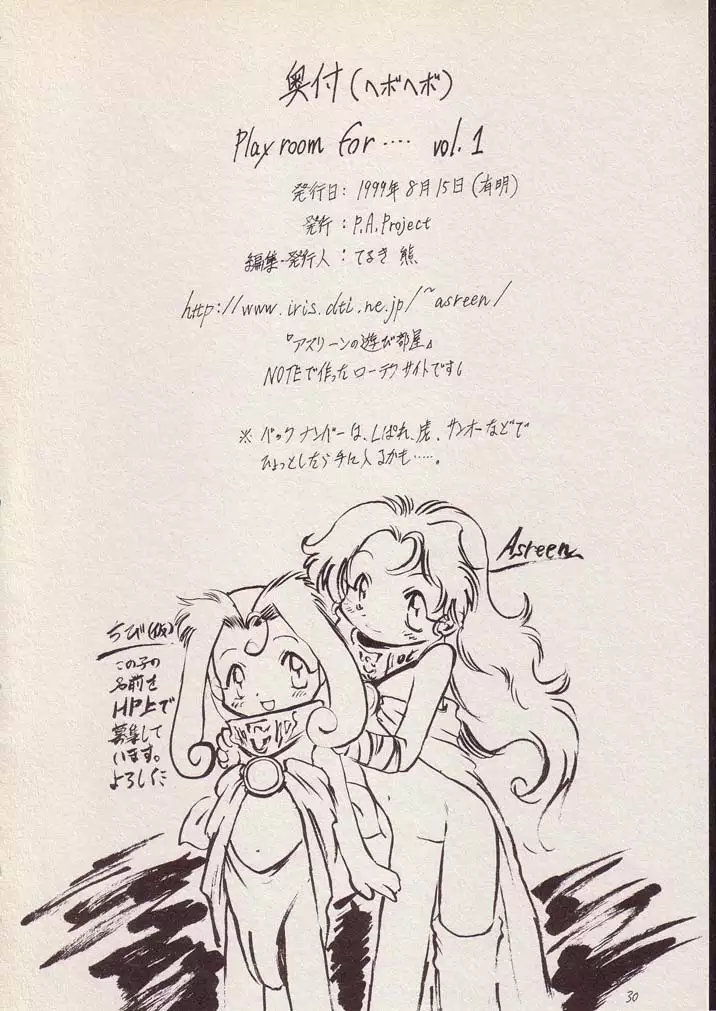 奥付(ヘボヘボ)
Play room for‥‥ vol.1
発行日: 1999年8月15日(有明)
発行: P.A.Project
編集・発行人: てるき熊
http://www.iris.dti.ne.jp/~asreen/
『アスリーンの遊び部屋』
NOTEで作ったローテクサイトです
※ バックナンバーは、しぱれ、虎、サンオーなどで
ひょっとしたら手に入るかも‥‥。
Asreen
ちび(仮)
この子の
名前を
HP上で
募集して
います。
よろしこ
30